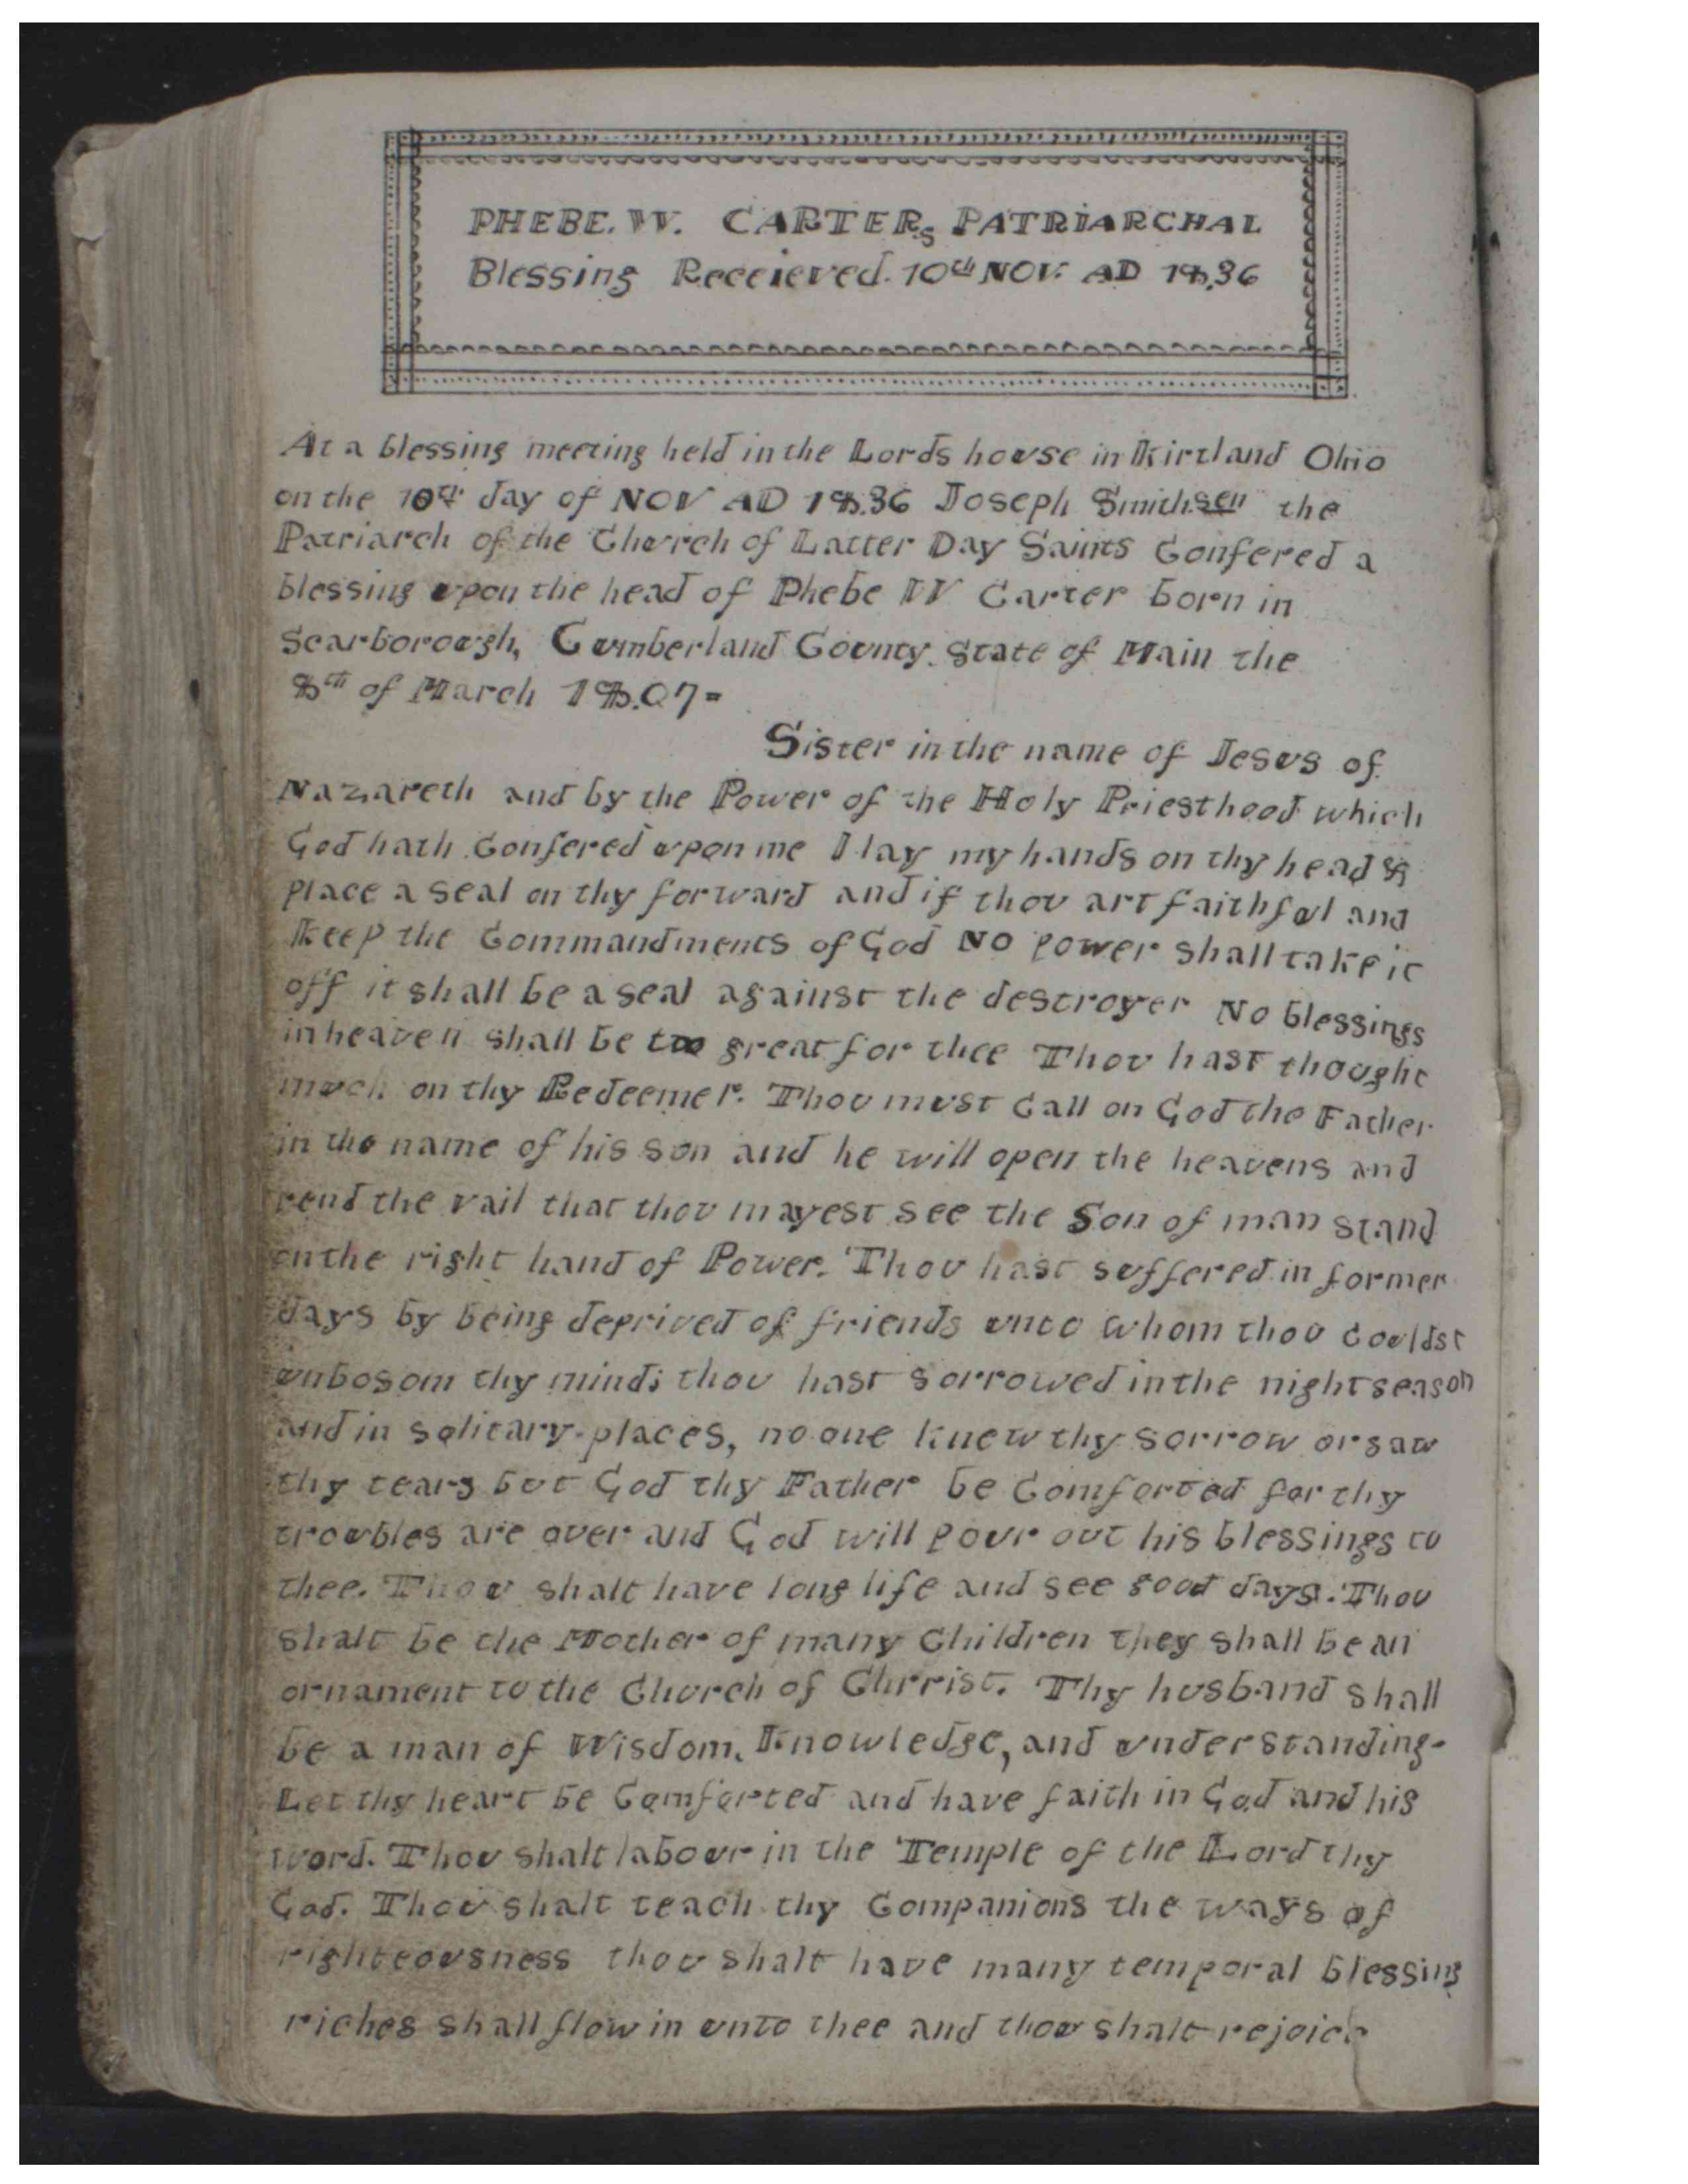 PHEBE. W. CARTERs PATRIARCHAL
Blessing Receieved. 10th NOV. AD 1836
At a blessing meeting held in the Lords house in Kirtland Ohio
on the 10th day of NOV AD 1836 Joseph Smith sen the
Patriarch of the Church of Latter Day Saints Confered a
blessing upon the head of Phebe W Carter born in
Scarborough, Cumberland County. State of Main the
8th of March 1807=
Sister in the name of Jesus of
Nazareth and by the Power of the Holy Priesthood which
God hath Confered upon me I lay my hands on thy head &
place a seal on thy forward and if thou art faithful and
Keep the Commandments of God No power shall take it
off it shall be a seal against the destroyer No blessings
in heaven shall be too great for thee Thou hast thought
much on thy Redeemer. Thou must Call on God the Father
in the name of his son and he will open the heavens and
rend the vail that thou mayest see the Son of man stand
on the right hand of Power. Thou hast suffered in former
days by being deprived of friends unto whom thou Couldst
unbosom thy mind; thou hast sorrowed in the night season
and in solitary-places, no one knew thy sorrow or saw
thy tears but God thy Father be Comforted for thy
troubles are over and God will pour out his blessings to
thee. Thou shalt have long life and see good days. Thou
shalt be the Mother of many Children they shall be an
ornament to the Church of Chrrist. Thy husband shall
be a man of Wisdom, Knowledge, and understanding-
Let thy heart be Comforted and have faith in God and his
word. Thou shalt labour in the Temple of the Lord thy
God. Thou shalt teach thy Companions the ways of
righteousness thou shalt have many temporal blessing
riches shall flow in unto thee and thou shalt rejoice